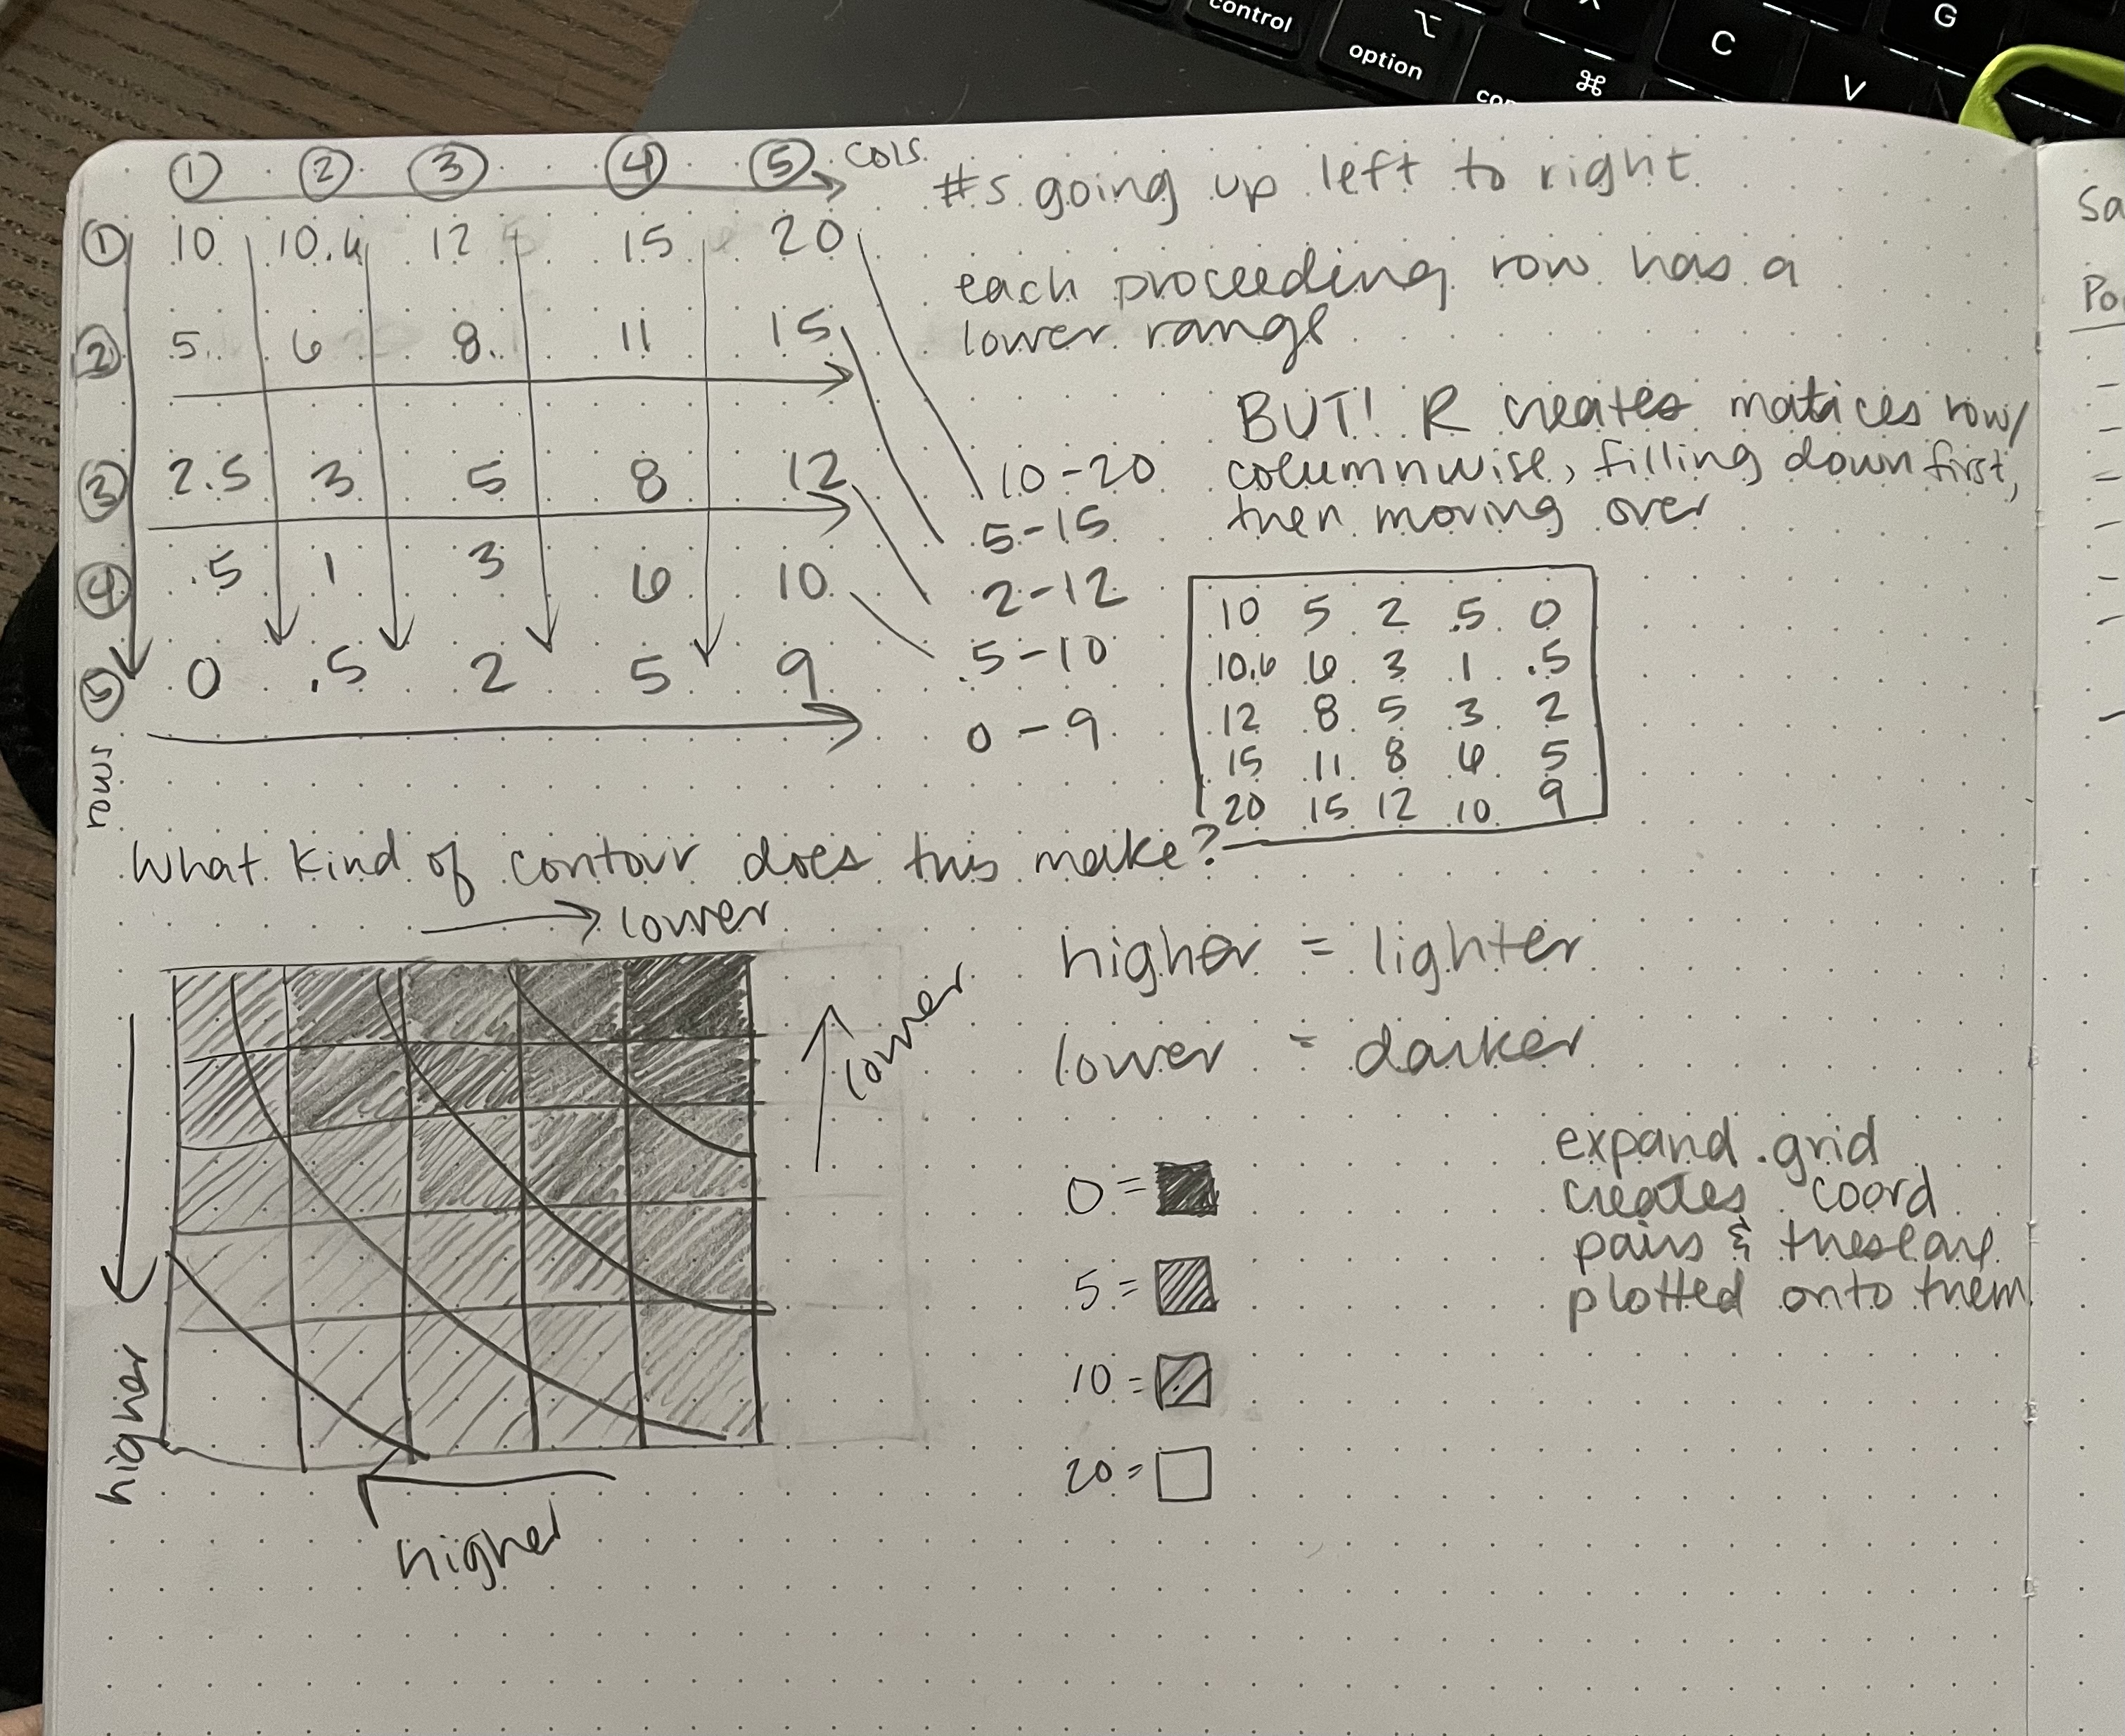 control
option
⌘
C
V
G
① ② ③ ④ ⑤ cols
① 10 10.6 12 15 20
② 5 6 8 11 15
③ 2.5 3 5 8 12
④ .5 1 3 6 10
⑤ 0 .5 2 5 9
rows
#s going up left to right
each proceeding row has a
lower range
10-20
5-15
2-12
.5-10
0-9
BUT! R creates matices row/
columnwise, filling down first,
then moving over
10 5 2 .5 0
10.6 6 3 1 .5
12 8 5 3 2
15 11 8 6 5
20 15 12 10 9
What kind of contour does this make?
lower
lower
higher
higher
higher = lighter
lower = darker
0 =
5 =
10 =
20 =
expand.grid
creates coord
pairs & these are
plotted onto them